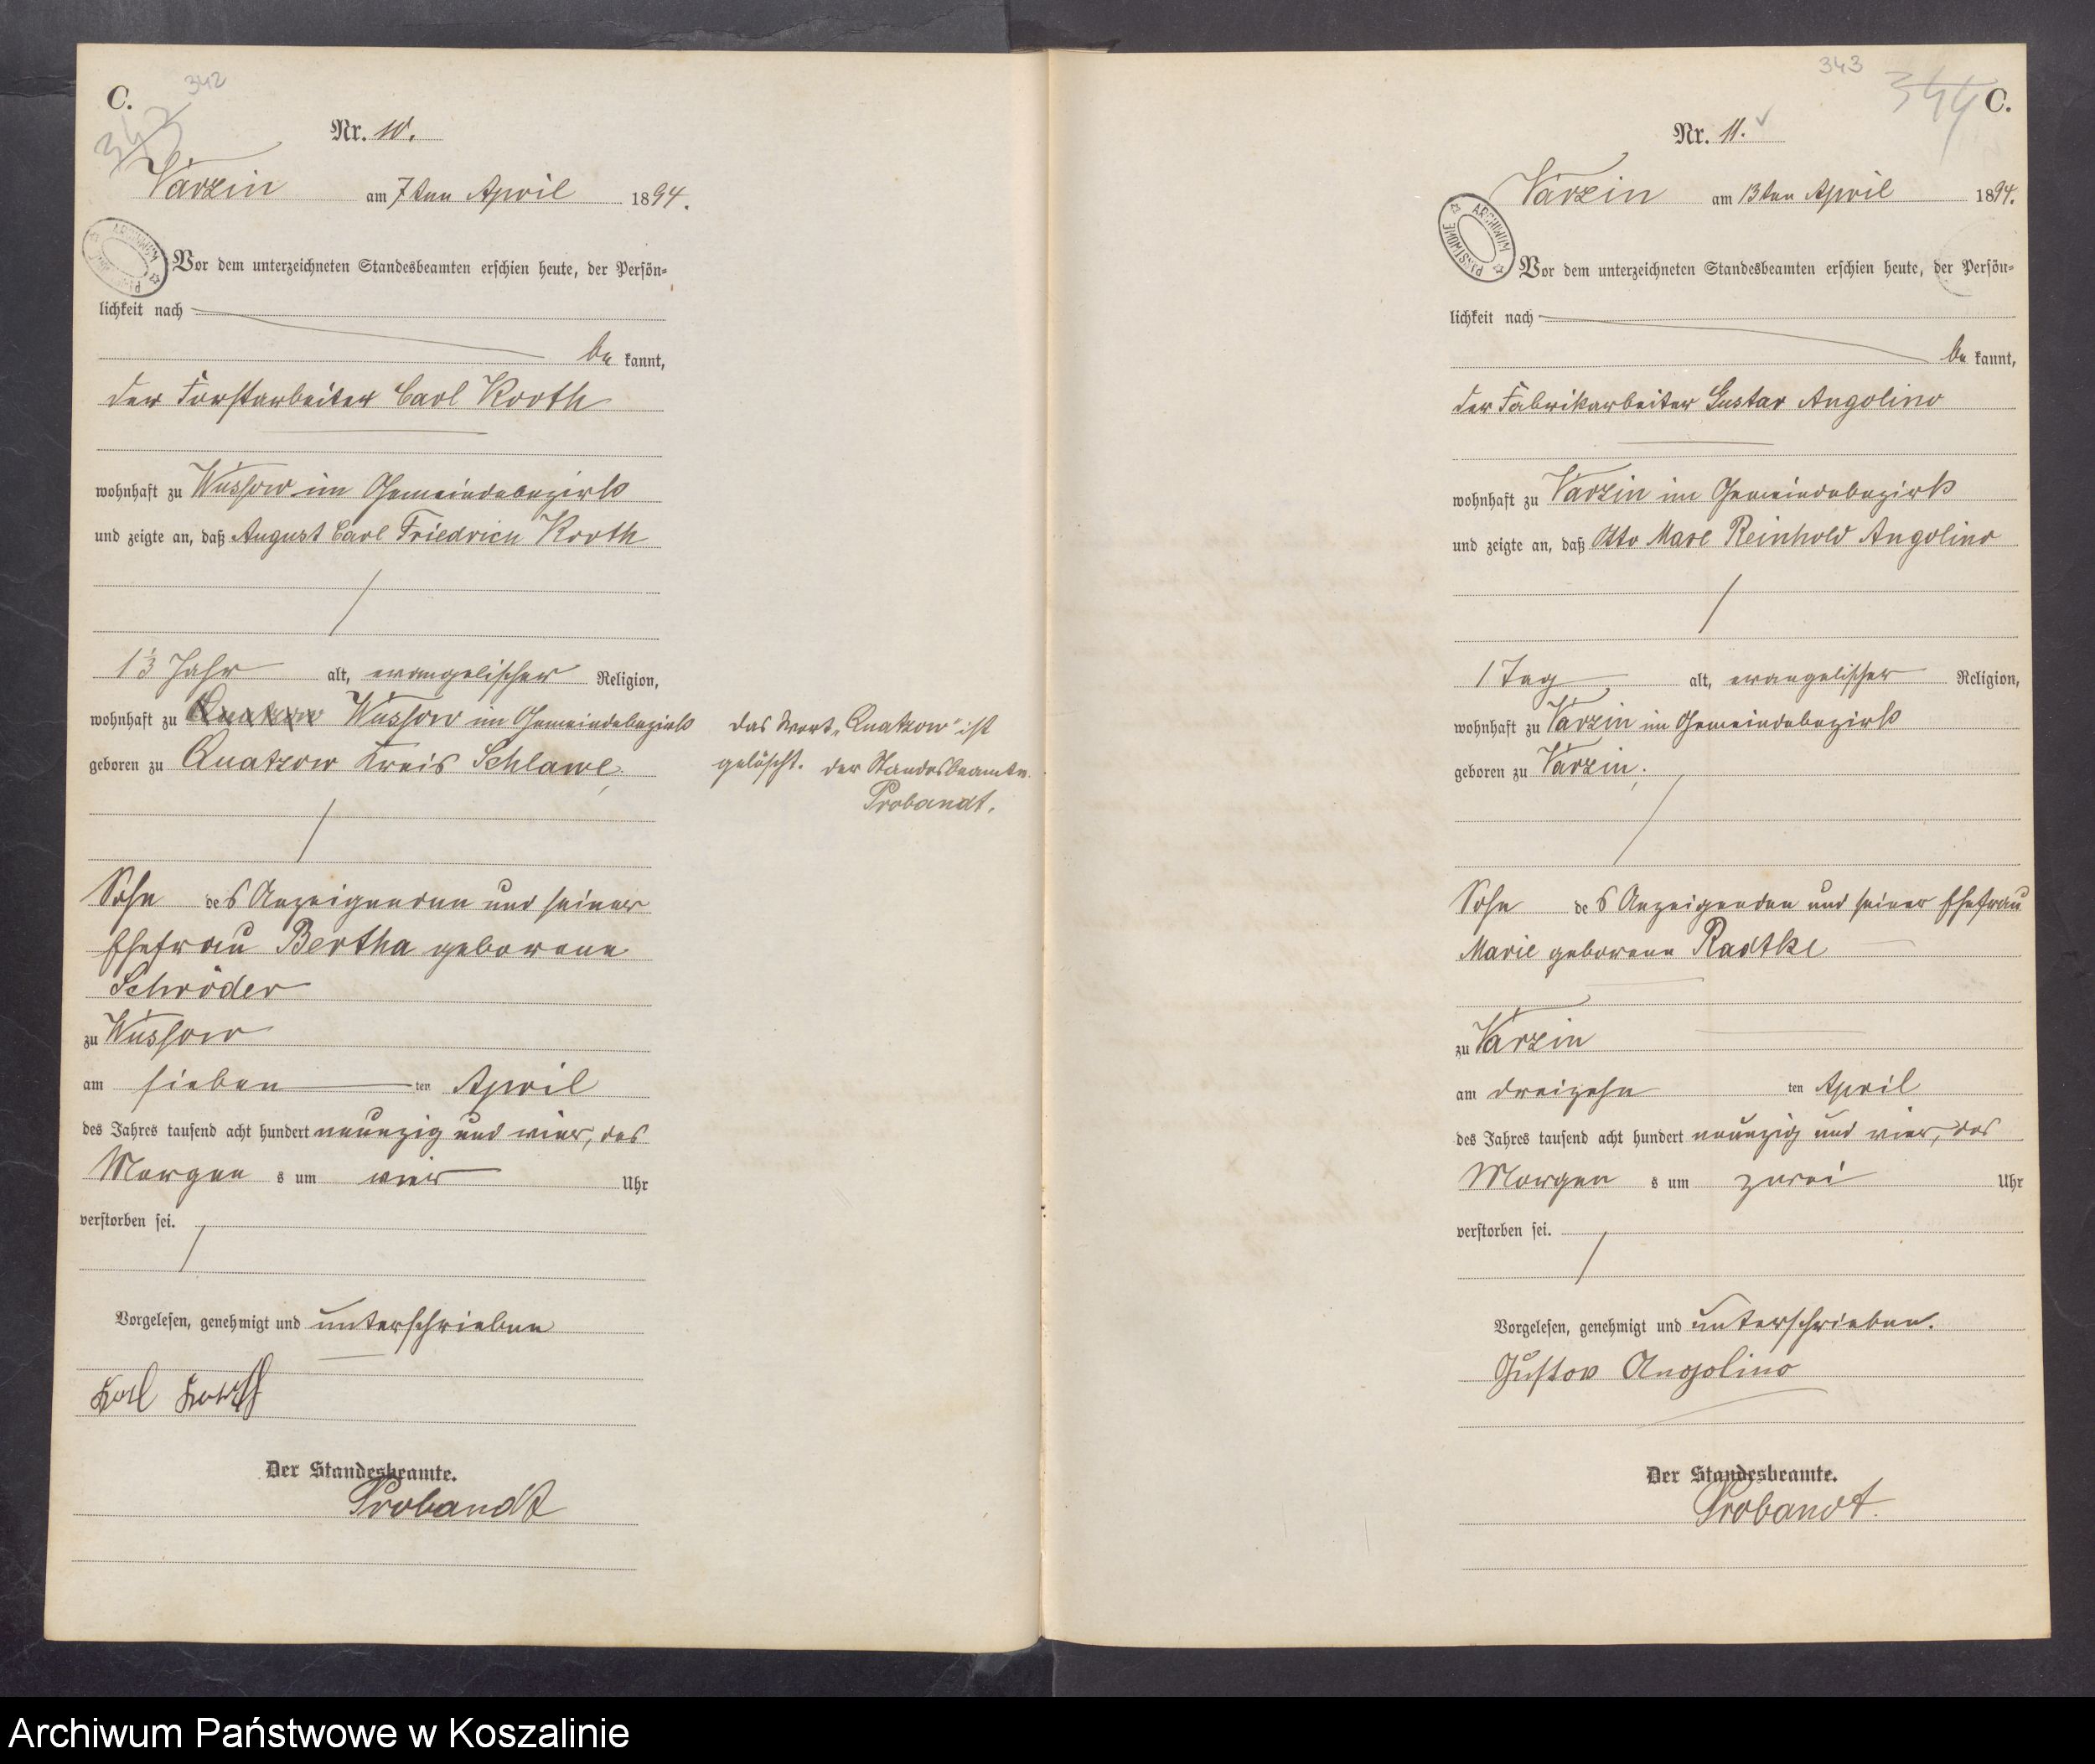 C.
342
343
Nr. 10.
Varzin am 7ten April 1894.
Vor dem unterzeichneten Standesbeamten erschien heute, der Persön=
lichkeit nach
be kannt,
der Forstarbeiter Carl Kooth
wohnhaft zu Wussow im Gemeindebezirk
und zeigte an, daß August Carl Friedrich Kooth
1⅓ Jahr alt, evangelischer Religion,
wohnhaft zu Quatzow Wussow im Gemeindebezirk
geboren zu Quatzow Kreis Schlawe,
Sohn des Anzeigenden und seiner
Ehefrau Bertha geborene
Schröder
zu Wussow
am sieben ten April
des Jahres tausend acht hundert neunzig und vier, des
Morgen s um vier Uhr
verstorben sei.
Vorgelesen, genehmigt und unterschrieben
Karl
Der Standesbeamte.
Probandt
Das Wort „Quatzow" ist
gelöscht. Der Standesbeamte.
Probandt.
343
344
C.
Nr. 11.
Varzin am 13ten April 1894.
ARCHIWUM PAŃSTWOWE
Vor dem unterzeichneten Standesbeamten erschien heute, der Persön=
lichkeit nach
be kannt,
der Fabrikarbeiter Gustav Angolino
wohnhaft zu Varzin im Gemeindebezirk
und zeigte an, daß Otto Max Reinhold Angolino
1 Tag alt, evangelischer Religion,
wohnhaft zu Varzin im Gemeindebezirk
geboren zu Varzin,
Sohn des Anzeigenden und seiner Ehefrau
Marie geborene Radtke
zu Varzin
am dreizehn ten April
des Jahres tausend acht hundert neunzig und vier, des
Morgen s um zwei Uhr
verstorben sei.
Vorgelesen, genehmigt und unterschrieben.
Gustav Angolino
Der Standesbeamte.
Probandt.
Archiwum Państwowe w Koszalinie